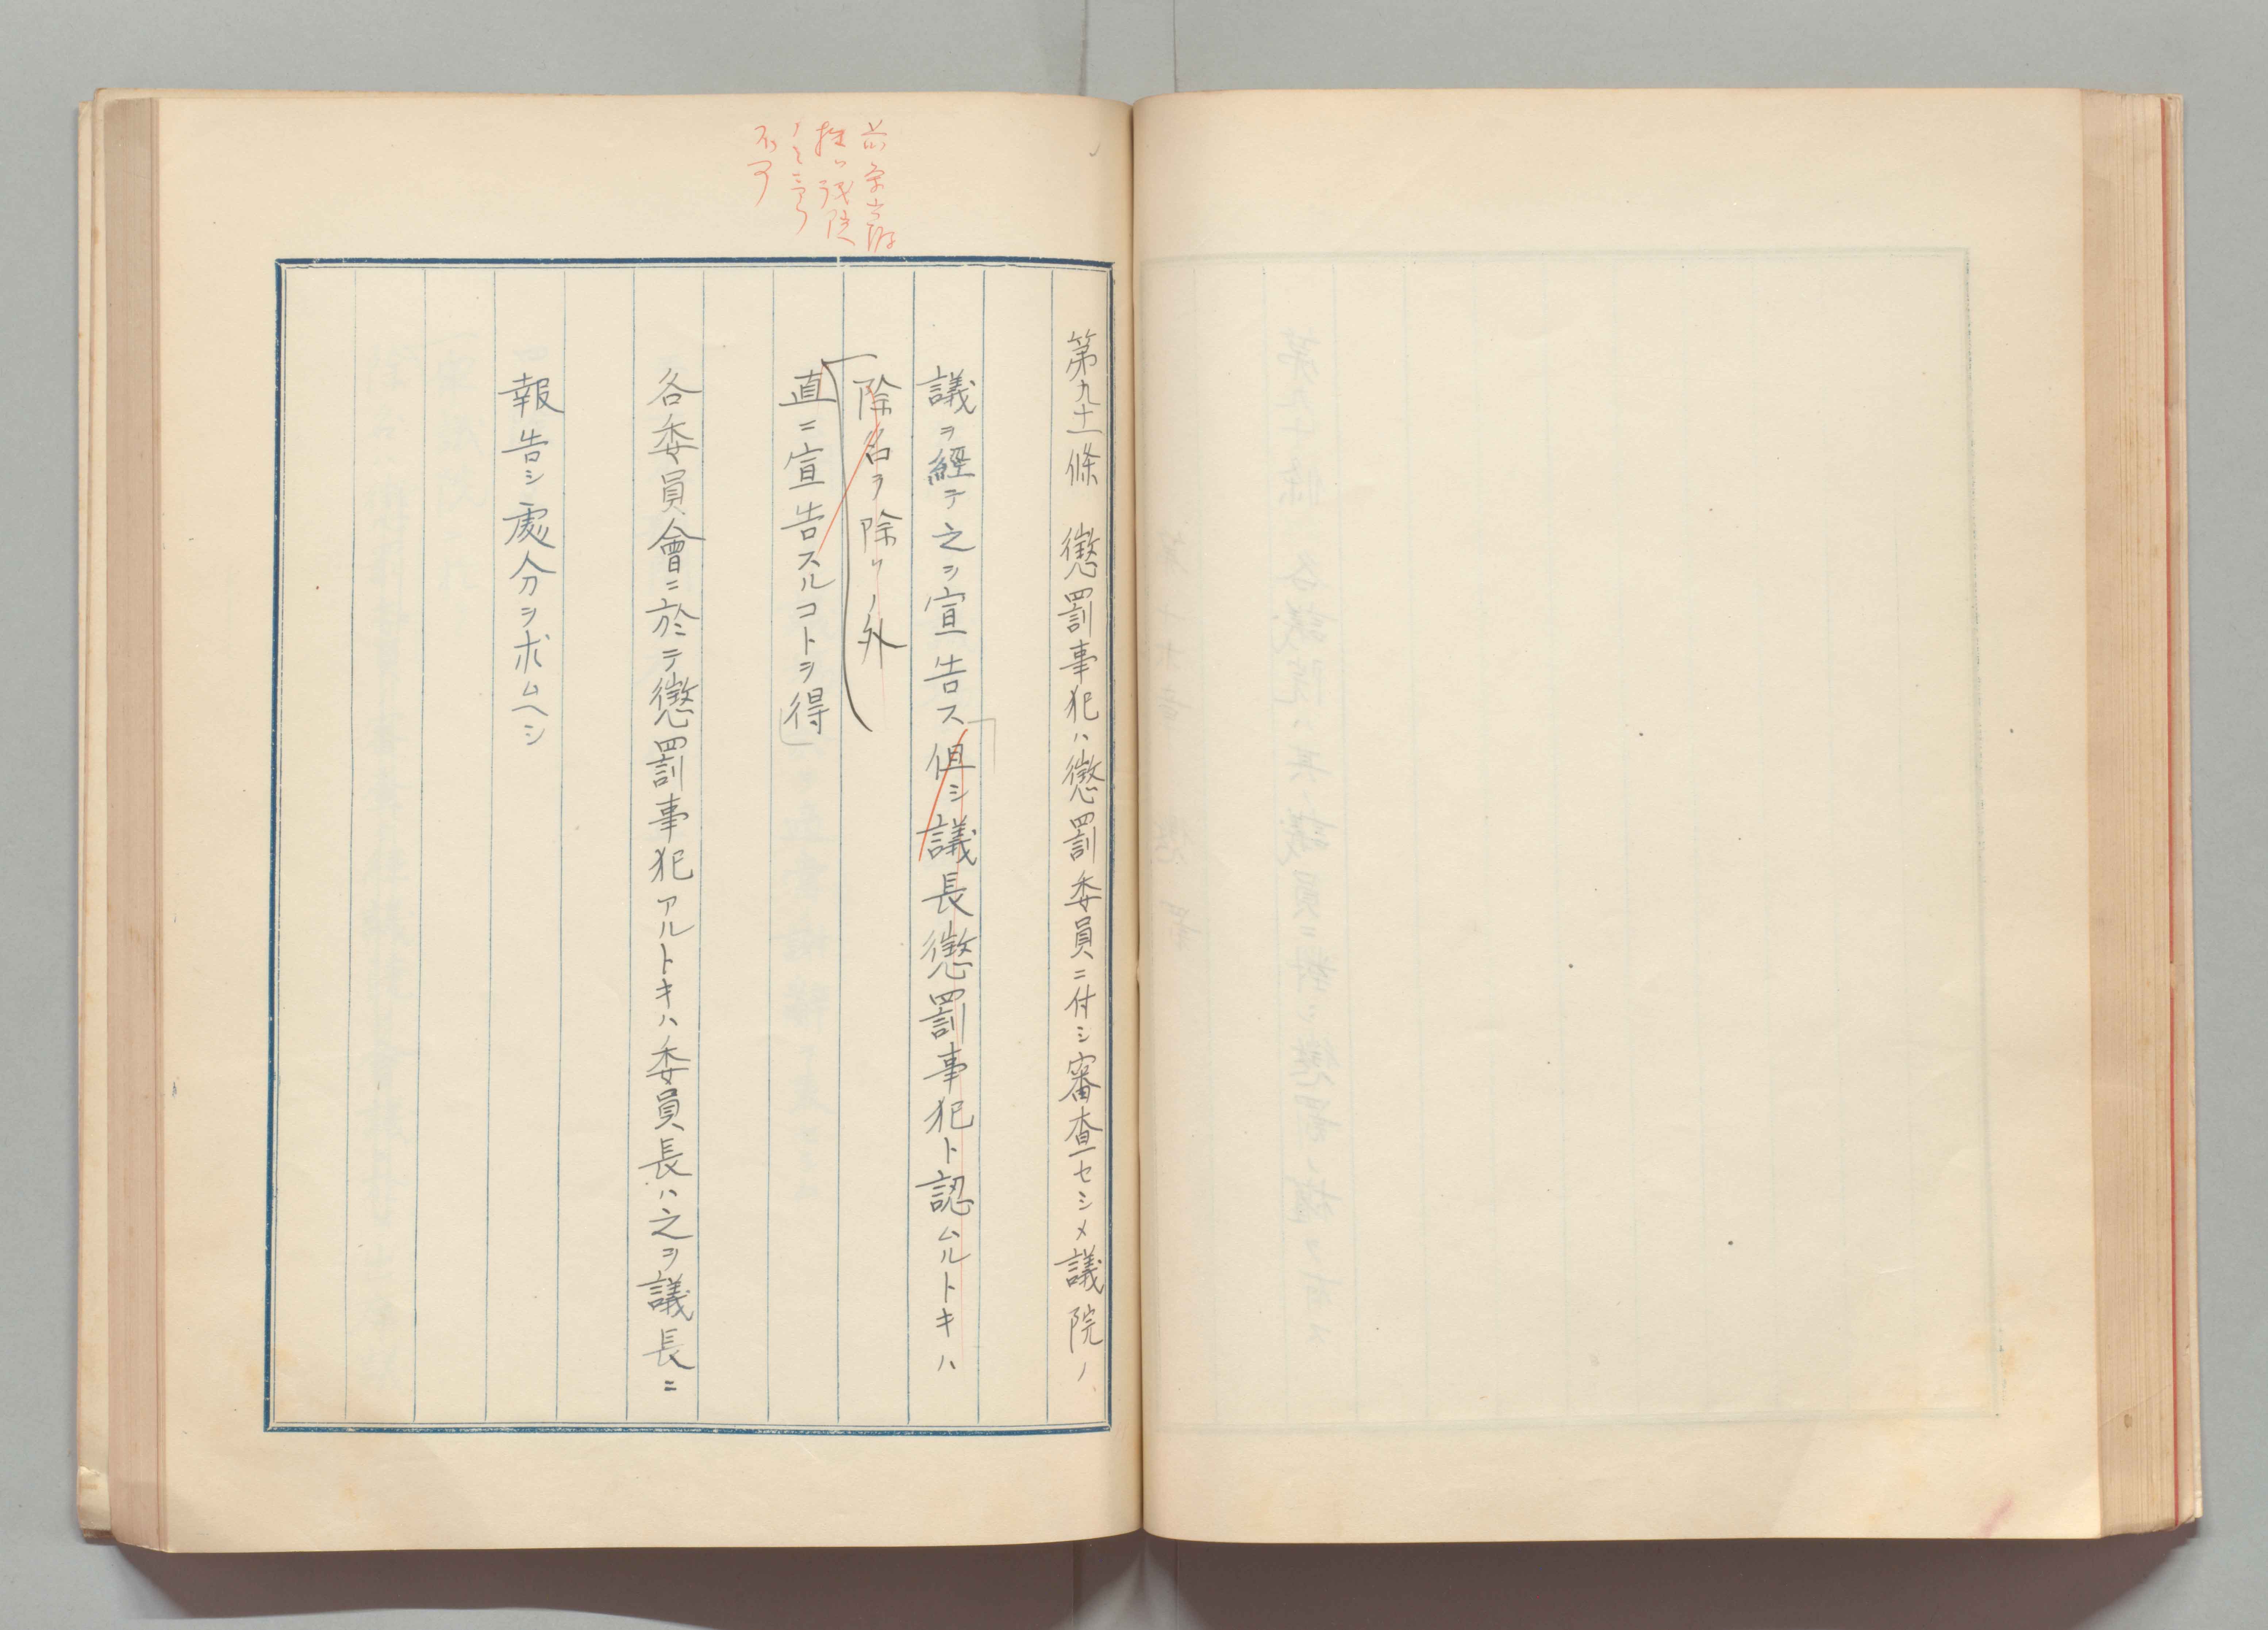 第九十一條 懲罰事犯ハ懲罰委員ニ付シ審査セシメ議院ノ
議ヲ經テ之ヲ宣告ス但シ議長懲罰事犯ト認ムルトキハ
除名ヲ除クノ外
直ニ宣告スルコトヲ得
各委員會ニ於テ懲罰事犯アルトキハ委員長ハ之ヲ議長ニ
報告シ處分ヲ求ムヘシ
不可